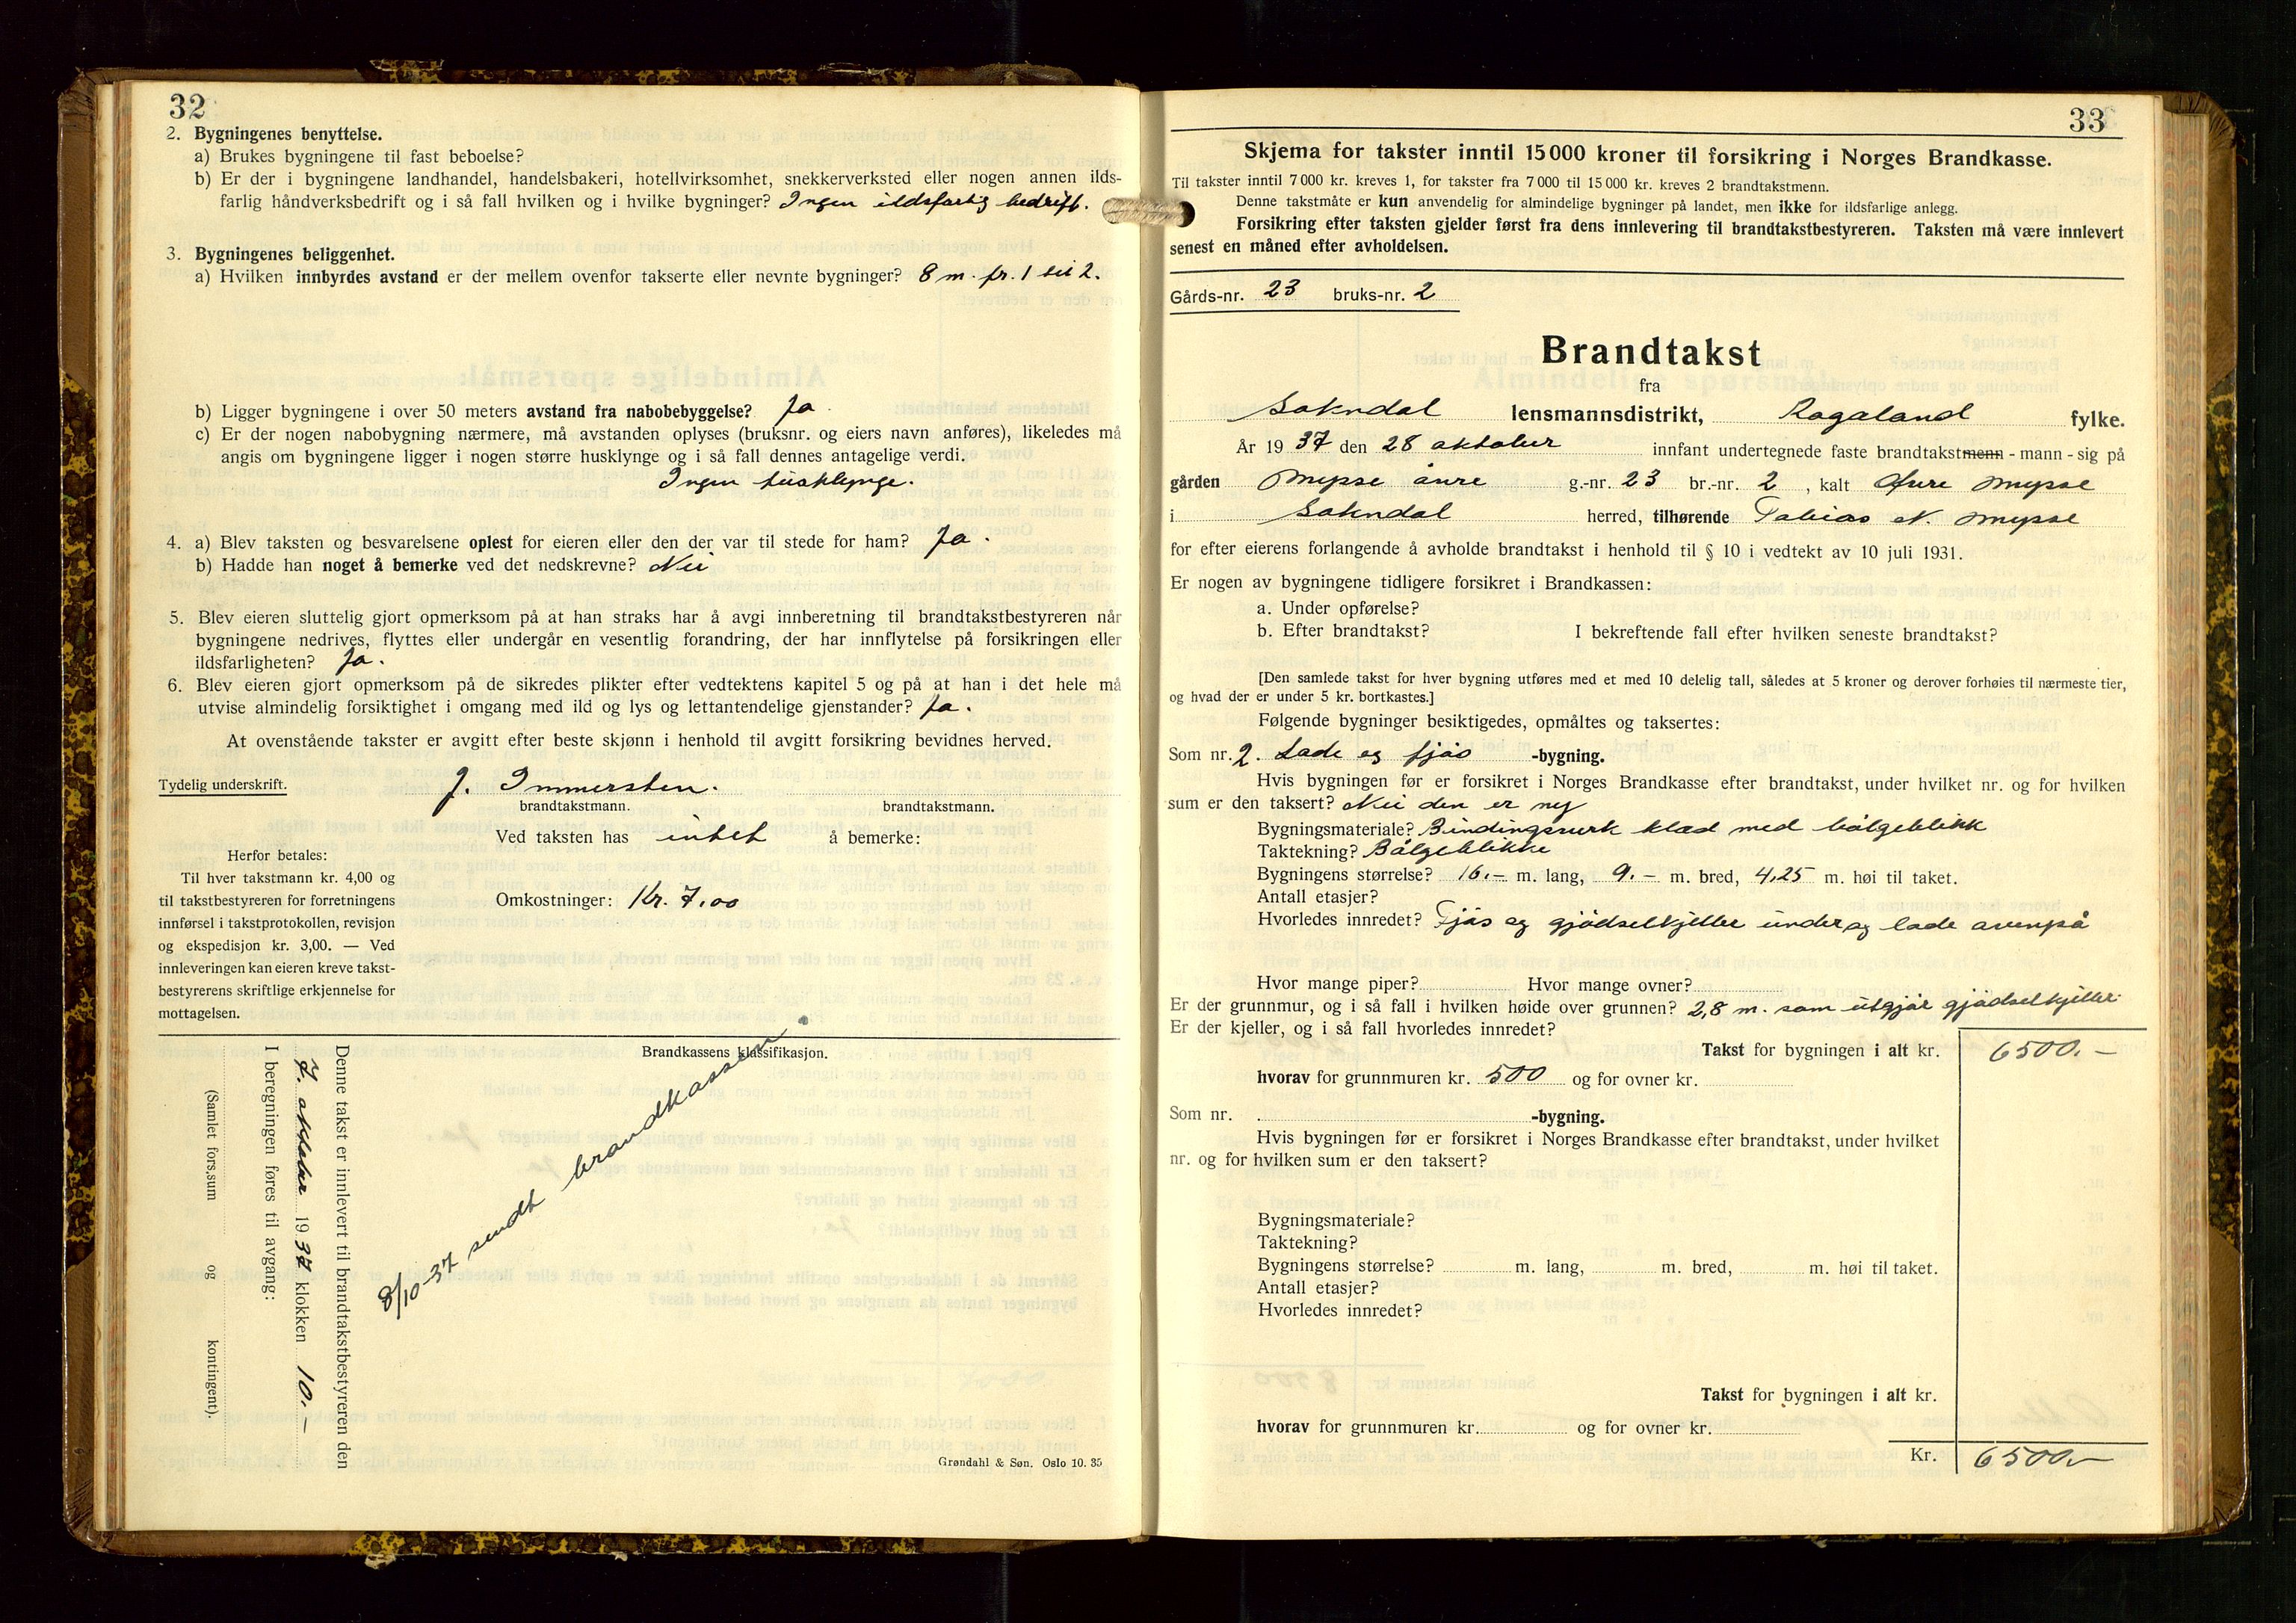 32
2. Bygningenes benyttelse.
a) Brukes bygningene til fast beboelse?
b) Er der i bygningene landhandel, handelsbakeri, hotellvirksomhet, snekkerverksted eller nogen annen ilds-
farlig håndverksbedrift og i så fall hvilken og i hvilke bygninger? Ingen ildsfarlig bedrift.
3. Bygningenes beliggenhet.
a) Hvilken innbyrdes avstand er der mellem ovenfor takserte eller nevnte bygninger? 8 m. fr. 1 til 2.
b) Ligger bygningene i over 50 meters avstand fra nabobebyggelse? Ja
c) Er der nogen nabobygning nærmere, må avstanden oplyses (bruksnr. og eiers navn anføres), likeledes må
angis om bygningene ligger i nogen større husklynge og i så fall dennes antagelige verdi.
Ingen husklynge.
4. a) Blev taksten og besvarelsene oplest for eieren eller den der var til stede for ham? Ja.
b) Hadde han noget å bemerke ved det nedskrevne? Nei
5. Blev eieren sluttelig gjort opmerksom på at han straks har å avgi innberetning til brandtakstbestyreren når
bygningene nedrives, flyttes eller undergår en vesentlig forandring, der har innflytelse på forsikringen eller
ildsfarligheten? Ja.
6. Blev eieren gjort opmerksom på de sikredes plikter efter vedtektens kapitel 5 og på at han i det hele må
utvise almindelig forsiktighet i omgang med ild og lys og lettantendelige gjenstander? Ja.
At ovenstående takster er avgitt efter beste skjønn i henhold til avgitt forsikring bevidnes herved.
Tydelig underskrift. J. Immersten.
brandtakstmann. brandtakstmann.
Ved taksten has intet å bemerke:
Herfor betales:
Til hver takstmann kr. 4,00 og
til takstbestyreren for forretningens
innførsel i takstprotokollen, revisjon
og ekspedisjon kr. 3,00. — Ved
innleveringen kan eieren kreve takst-
bestyrerens skriftlige erkjennelse for
mottagelsen.
Omkostninger: Kr. 7.00
Brandkassens klassifikasjon.
8/10-37 sendt brandkassen.
Denne takst er innlevert til brandtakstbestyreren den
7. oktober 1937 klokken 10.—
I beregningen føres til avgang:
(Samlet fors.sum og kontingent).
Grøndahl & Søn. Oslo 10. 35
33
Skjema for takster inntil 15000 kroner til forsikring i Norges Brandkasse.
Til takster inntil 7000 kr. kreves 1, for takster fra 7000 til 15000 kr. kreves 2 brandtakstmenn.
Denne takstmåte er kun anvendelig for almindelige bygninger på landet, men ikke for ildsfarlige anlegg.
Forsikring efter taksten gjelder først fra dens innlevering til brandtakstbestyreren. Taksten må være innlevert
senest en måned efter avholdelsen.
Gårds-nr. 23 bruks-nr. 2
Brandtakst
fra
Sokndal lensmannsdistrikt, Rogaland fylke.
År 1937 den 28 oktober innfant undertegnede faste brandtakstmenn - mann - sig på
gården Mysse åure g.-nr. 23 br.-nr. 2, kalt Øvre Mysse
i Sokndal herred, tilhørende Tobias N. Mysse
for efter eierens forlangende å avholde brandtakst i henhold til § 10 i vedtekt av 10 juli 1931.
Er nogen av bygningene tidligere forsikret i Brandkassen:
a. Under opførelse?
b. Efter brandtakst? I bekreftende fall efter hvilken seneste brandtakst?
[Den samlede takst for hver bygning utføres med et med 10 delelig tall, således at 5 kroner og derover forhøies til nærmeste tier,
og hvad der er under 5 kr. bortkastes.]
Følgende bygninger besiktigedes, opmåltes og taksertes:
Som nr. 2. Lade og fjøs -bygning.
Hvis bygningen før er forsikret i Norges Brandkasse efter brandtakst, under hvilket nr. og for hvilken
sum er den taksert? Nei den er ny
Bygningsmateriale? Bindingsverk klæd med bølgeblikk
Taktekning? Bølgeblikke
Bygningens størrelse? 16.- m. lang, 9.- m. bred, 4,25 m. høi til taket.
Antall etasjer?
Hvorledes innredet? Fjøs og gjødselkjeller under og lade ovenpå
Hvor mange piper? Hvor mange ovner?
Er der grunnmur, og i så fall i hvilken høide over grunnen? 2,8 m. som utgjør gjødselkjeller.
Er der kjeller, og i så fall hvorledes innredet?
Takst for bygningen i alt kr. 6500.—
hvorav for grunnmuren kr. 500 og for ovner kr.
Som nr. -bygning.
Hvis bygningen før er forsikret i Norges Brandkasse efter brandtakst, under hvilket
nr. og for hvilken sum er den taksert?
Bygningsmateriale?
Taktekning?
Bygningens størrelse? m. lang, m. bred, m. høi til taket.
Antall etasjer?
Hvorledes innredet?
Takst for bygningen i alt kr.
hvorav for grunnmuren kr. og for ovner kr.
Kr. 6500.—